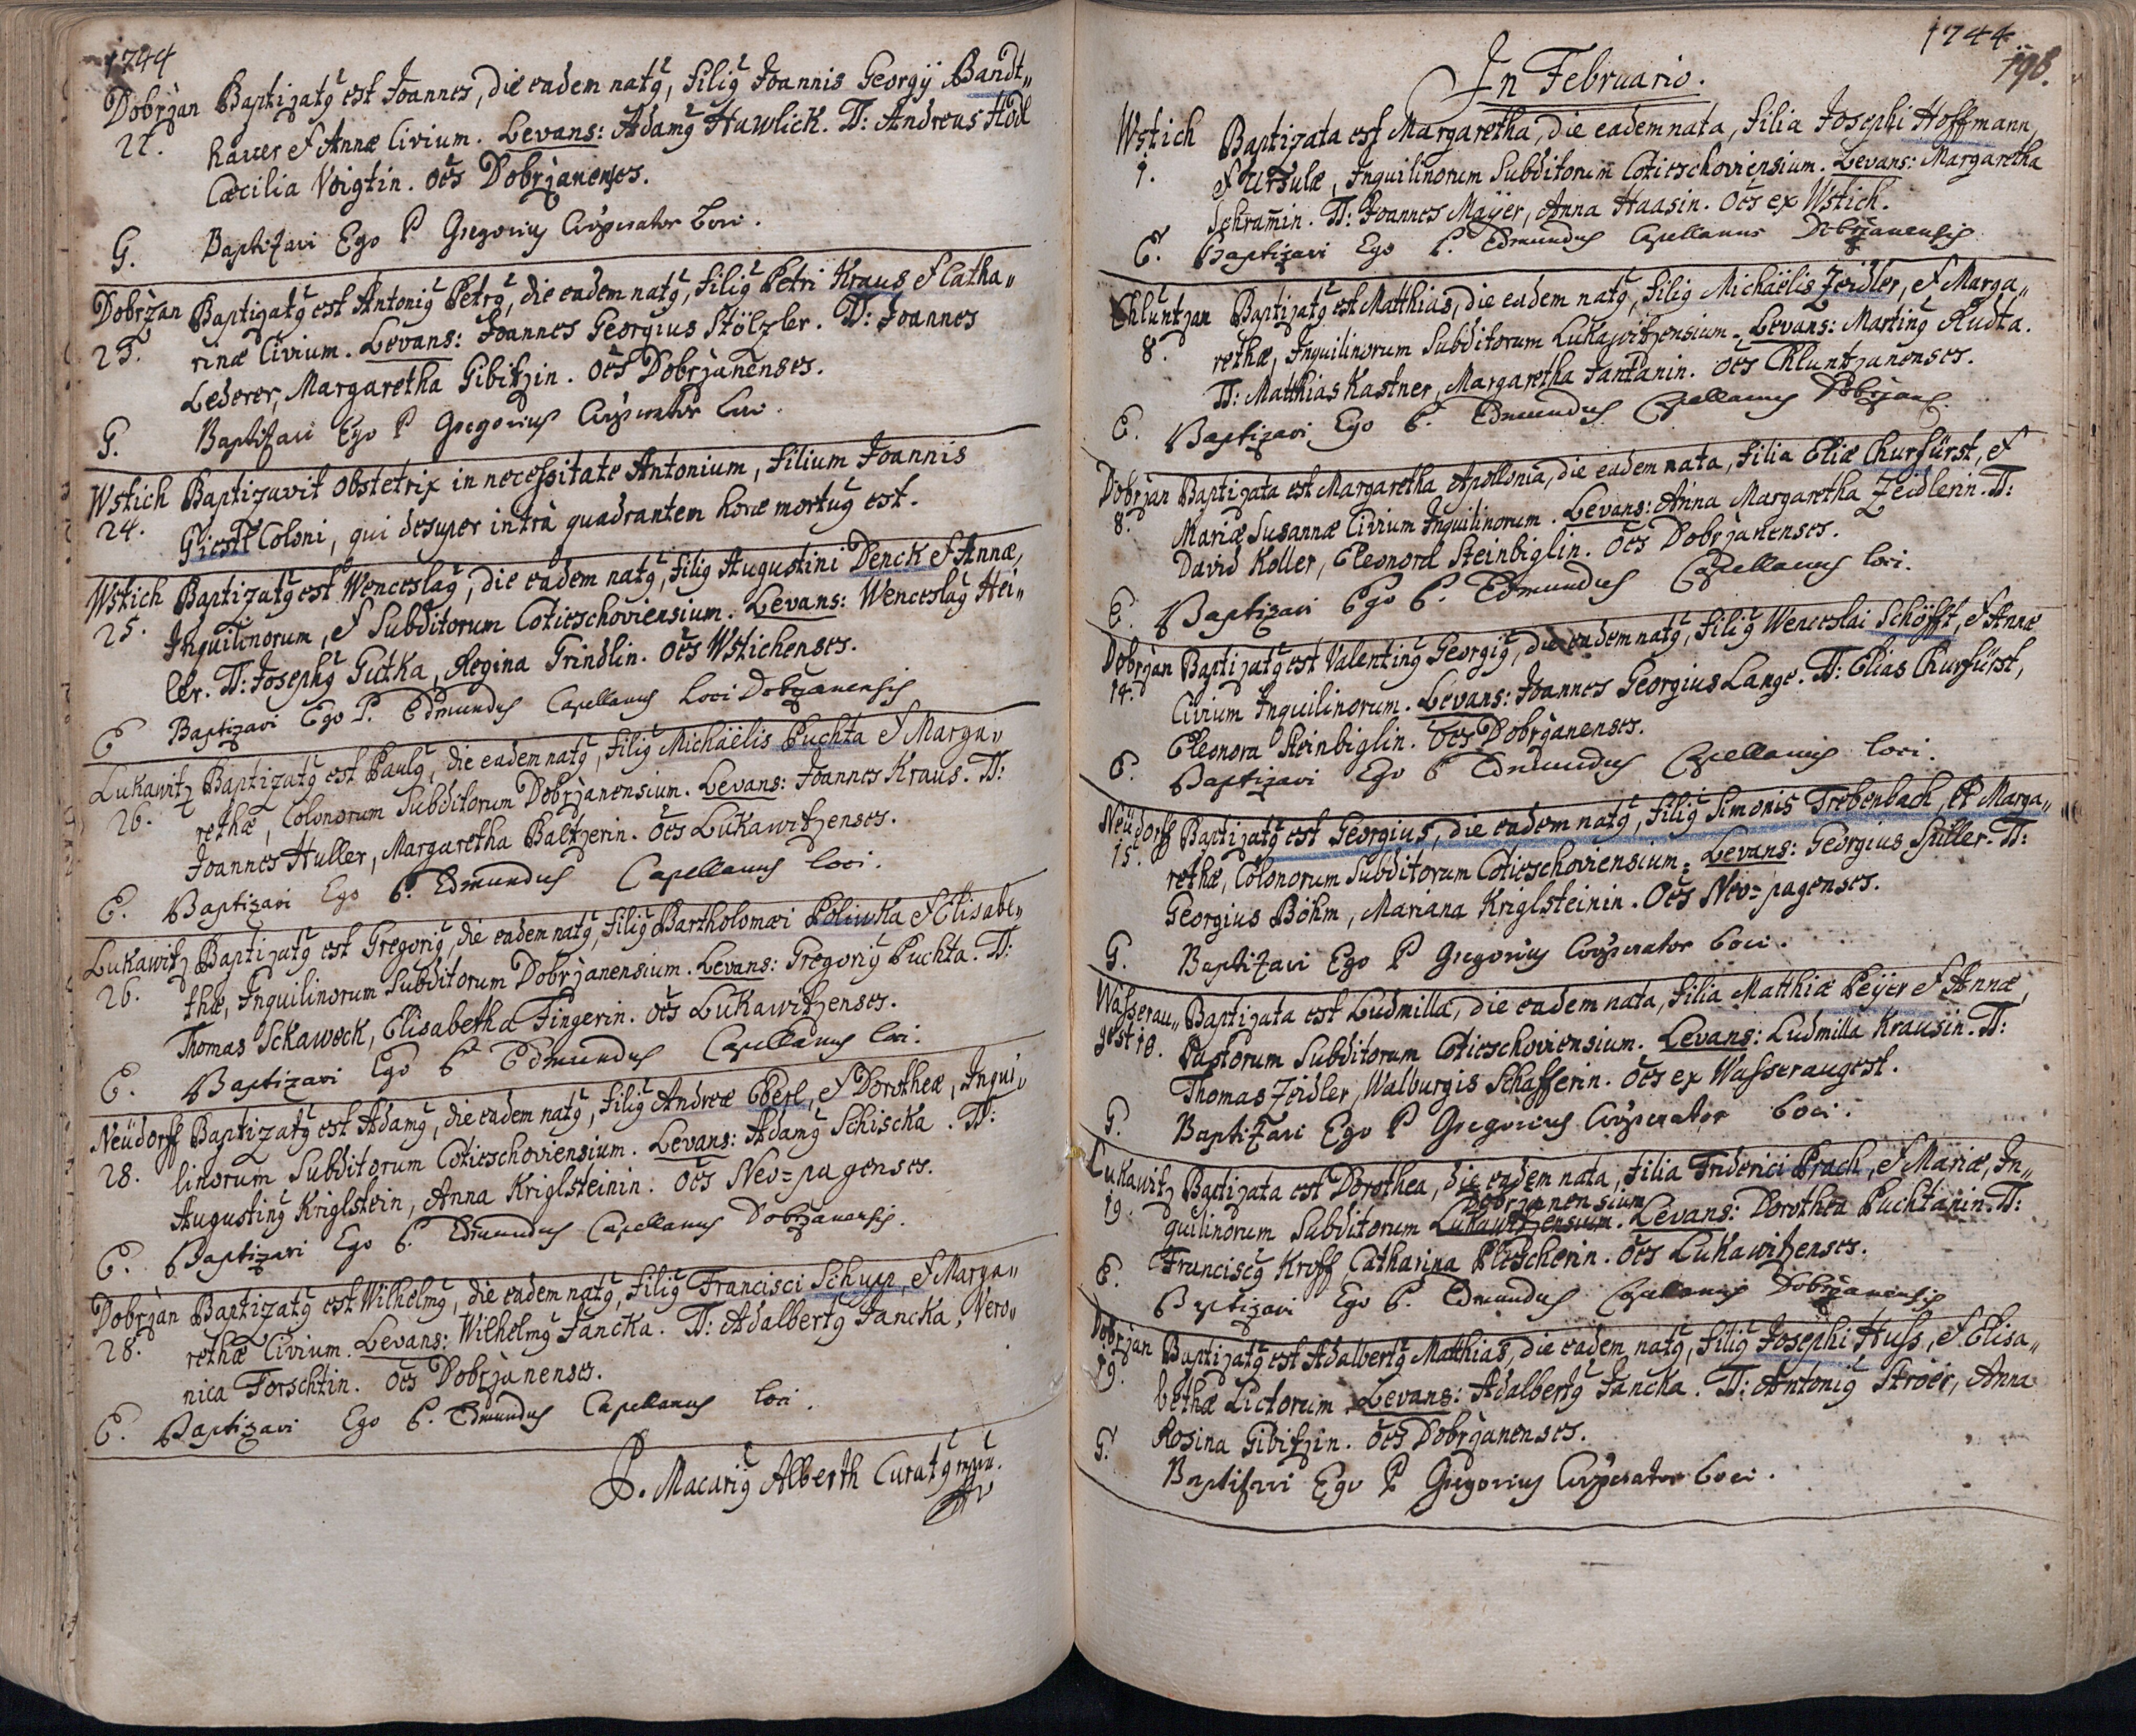 1744
Dobrzan Baptizatꝰ est Joannes, die eadem natꝰ, filiꝰ Joannis Georgÿ Bandt„
22. hauer & Annæ Civium. Levans: Adamꝰ Hawlick. TT: Andreas Hödl
Cæcilia Voigtin. Oẽs Dobrzanenses.
G. Baptizavi Ego P Gregorius Cooperator Loci.
Dobrzan Baptizatꝰ est Antoniꝰ Petrꝰ, die eadem natꝰ, filiꝰ Petri Kraus & Catha„
23. rinæ Civium. Levans: Joannes Georgius Stölzler. TT: Joannes
Lederer, Margaretha Gibitzin. Oẽs Dobrzanenses.
G. Baptizavi Ego P Gregorius Cooperator Loci.
Wstich Baptizavit obstetrix in necessitate Antonium, filium Joannis
24. Giestl Coloni, qui desuper intrà quadrantem horæ mortuꝰ est.
Wstich Baptizatꝰ est Wenceslaꝰ, die eadem natꝰ, filiꝰ Augustini Denck & Annæ,
25. Inquilinorum, & Subditorum Cotieschoviensium. Levans: Wenceslaꝰ Hei„
ler. TT: Josephꝰ Gutka, Regina Grindlin. Oẽs Wstichenses.
E Baptizavi Ego P. Edmundus Capellanus Loci Dobrzanensis
Lukawitz Baptizatꝰ est Paulꝰ, die eadem natꝰ, filiꝰ Michaëlis Puchta & Marga„
26. rethæ, Colonorum Subditorum Dobrzanensium. Levans: Joannes Kraus. TT:
Joannes Huller, Margaretha Baltzerin. Oẽs Lukawitzenses.
E. Baptizavi Ego P. Edmundus Capellanus loci.
Lukawitz Baptizatꝰ est Gregoriꝰ, die eadem natꝰ, filiꝰ Bartholomæi Poliwka & Elisabe„
26. thæ, Inquilinorum Subditorum Dobrzanensium. Levans: Gregoriꝰ Puchta. TT:
Thomas Sckaweck, Elisabetha Fingerin. Oẽs Lukawitzenses.
E. Baptizavi Ego P Edmundus Capellanus loci.
Neüdorff Baptizatꝰ est Adamꝰ, die eadem natꝰ, filiꝰ Andreæ Eberl, & Dorotheæ, Inqui„
28. linorum Subditorum Cotieschoviensium. Levans: Adamꝰ Schiscka. TT:
Augustinꝰ Kriglstein, Anna Kriglsteinin. Oẽs Neo=pagenses.
E. Baptizavi Ego P. Edmundus Capellanus Dobrzanensis.
Dobrzan Baptizatꝰ est Wilhelmꝰ, die eadem natꝰ, filiꝰ Francisci Schupp, & Marga„
28. rethæ Civium. Levans: Wilhelmꝰ Jancka. TT: Adalbertꝰ Jancka, Vero„
nica Forschtin. Oẽs Dobrzanenses.
E. Baptizavi Ego P. Edmundus Capellanus loci.
P. Macariꝰ Alberth Curatꝰ mpria.
1744
198.
In Februario.
Wstich Baptizata est Margaretha, die eadem nata, filia Josephi Hoffmann,
1. & Ursulæ, Inquilinorum Subditorum Cotieschoviensium. Levans: Margaretha
Schram̃in. TT: Joannes Maÿer, Anna Haasin. Oẽs ex Wstich.
E. Baptizavi Ego P. Edmundus Capellanus Dobrzanensis
Chluntzan Baptizatꝰ est Matthias, die eadem natꝰ, filiꝰ Michaëlis Zeidler, & Marga„
8. rethæ, Inquilinorum Subditorum Lukawitzensium. Levans: Martinꝰ Rudta.
TT: Matthias Kastner, Margaretha Jantanin. Oẽs Chluntzanenses.
E. Baptizavi Ego P. Edmundus Capellanus Dobrzans.
Dobrzan Baptizata est Margaretha Apollonia, die eadem nata, filia Eliæ Churfürst, &
8. Mariæ Susannæ Civium Inquilinorum. Levans: Anna Margaretha Zeidlerin. TT:
David Koller, Eleonora Steinbiglin. Oẽs Dobrzanenses.
E. Baptizavi Ego P. Edmundus Capellanus loci.
Dobrzan Baptizatꝰ est Valentinꝰ Georgiꝰ, die eadem natꝰ, filiꝰ Wenceslai Schöfft, & Annæ
14. Civium Inquilinorum. Levans: Joannes Georgius Lange. TT: Elias Churfürst,
Eleonora Steinbiglin. Oẽs Dobrzanenses.
E. Baptizavi Ego P Edmundus Capellanus loci.
Neüdorff Baptizatꝰ est Georgius, die eadem natꝰ, filiꝰ Simonis Trebenbach, et Marga„
15. rethæ, Colonorum Subditorum Cotieschoviensium. Levans: Georgius Sutler. TT:
Georgius Böhm, Mariana Kriglsteinin. Oẽs Neo=pagenses.
G. Baptizavi Ego P Gregorius Cooperator Loci.
Wasserau„ Baptizata est Ludmilla, die eadem nata, filia Matthiæ Peÿer & Annæ,
gest 18. Pastorum Subditorum Cotieschoviensium. Levans: Ludmilla Krausin. TT:
Thomas Zeidler, Walburgis Schafferin. Oẽs ex Wasseraugest.
G. Baptizavi Ego P Gregorius Cooperator Loci.
Lukawitz Baptizata est Dorothea, die eadem nata, filia Friderici Prach, & Mariæ, In„
Dobrzanensium
19. quilinorum Subditorum Lukawitzensium. Levans: Dorothea Puchtanin. TT:
Franciscꝰ Kroff, Catharina Pletscherin. Oẽs Lukawitzenses.
E. Baptizavi Ego P. Edmundus Capellanus Dobrzanensis
Dobrzan Baptizatꝰ est Adalbertꝰ Matthias, die eadem natꝰ, filiꝰ Josephi Huss, & Elisa„
19. bethæ Lictorum. Levans: Adalbertꝰ Jancka. TT: Antoniꝰ Ströer, Anna
Rosina Gibitzin. Oẽs Dobrzanenses.
G. Baptizavi Ego P Gregorius Cooperator Loci.